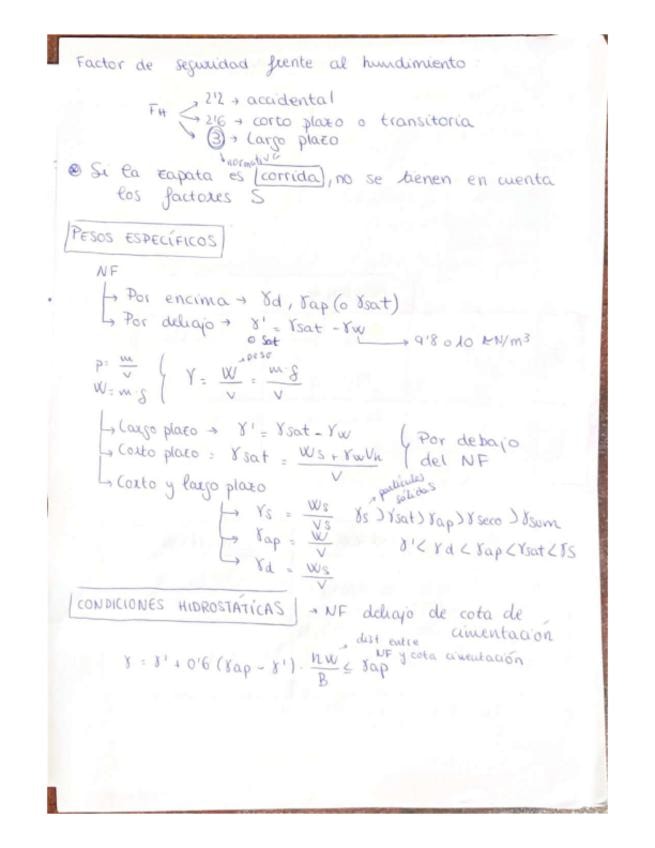 Factor de seguridad frente al hundimiento:
FH → 2'2 → accidental
→ 2'6 → corto plazo o transitoria
→ 3 → Largo plazo
↳ normativa
⊗ Si la zapata es corrida, no se tienen en cuenta
los factores S
PESOS ESPECÍFICOS
NF
↳ Por encima → γd, γap (o γsat)
↳ Por debajo → γ' = γsat - γw → 9'8 o 10 kN/m³
o sat
ρ = m/v
W = m·g
γ = W/V = m·g/V
→ peso
↳ Largo plazo → γ' = γsat - γw
↳ Corto plazo = γsat = Ws + γwVh / V
Por debajo
del NF
↳ Corto y largo plazo
→ partículas
sólidas
→ γs = Ws/Vs γs > γsat > γap > γseco > γsum
→ γap = W/V γ' < γd < γap < γsat < γs
→ γd = Ws/V
CONDICIONES HIDROSTÁTICAS → NF debajo de cota de
cimentación
→ dist entre
NF y cota cimentación
γ = γ' + 0'6 (γap - γ') · hw/B ≤ γap